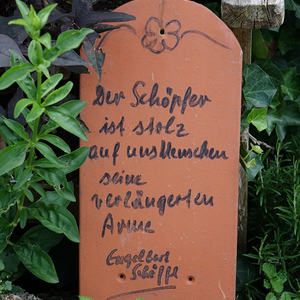 Der Schöpfer
ist stolz
auf uns Menschen
seine
verlängerten
Arme
Engelbert
Schöffl